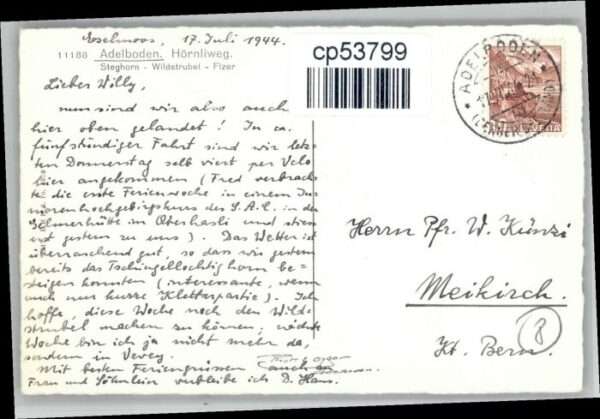 Eselmoos, 17. Juli 1944.
11188 Adelboden. Hörnliweg.
Steghorn - Wildstrubel - Fizer
cp53799
ADELBODEN
HELVETIA
Lieber Willy,
nun sind wir also auch
hier oben gelandet! In ca.
fünfstündiger Fahrt sind wir letz-
ten Donnerstag selb viert per Velo
hier angekommen (Fred verbrach-
te die erste Ferienwoche in einem Ju-
niorenhochgebirgskurs des S.A.C. in der
Gelmerhütte im Oberhasli und stiess
erst gestern zu uns). Das Wetter ist
überraschend gut, so dass wir gestern
bereits das Tschingellochtighorn be-
steigen konnten (interessante, wenn
auch nur kurze Kletterpartie). Ich
hoffe, diese Woche noch den Wild-
strubel machen zu können; nächste
Woche bin ich ja nicht mehr da,
sondern in Vevey.
Mit besten Feriengrüssen auch an
Frau und Söhnlein verbleibe ich D. Hans.
Herrn Pfr. W. Künzi
Meikirch.
Kt. Bern.